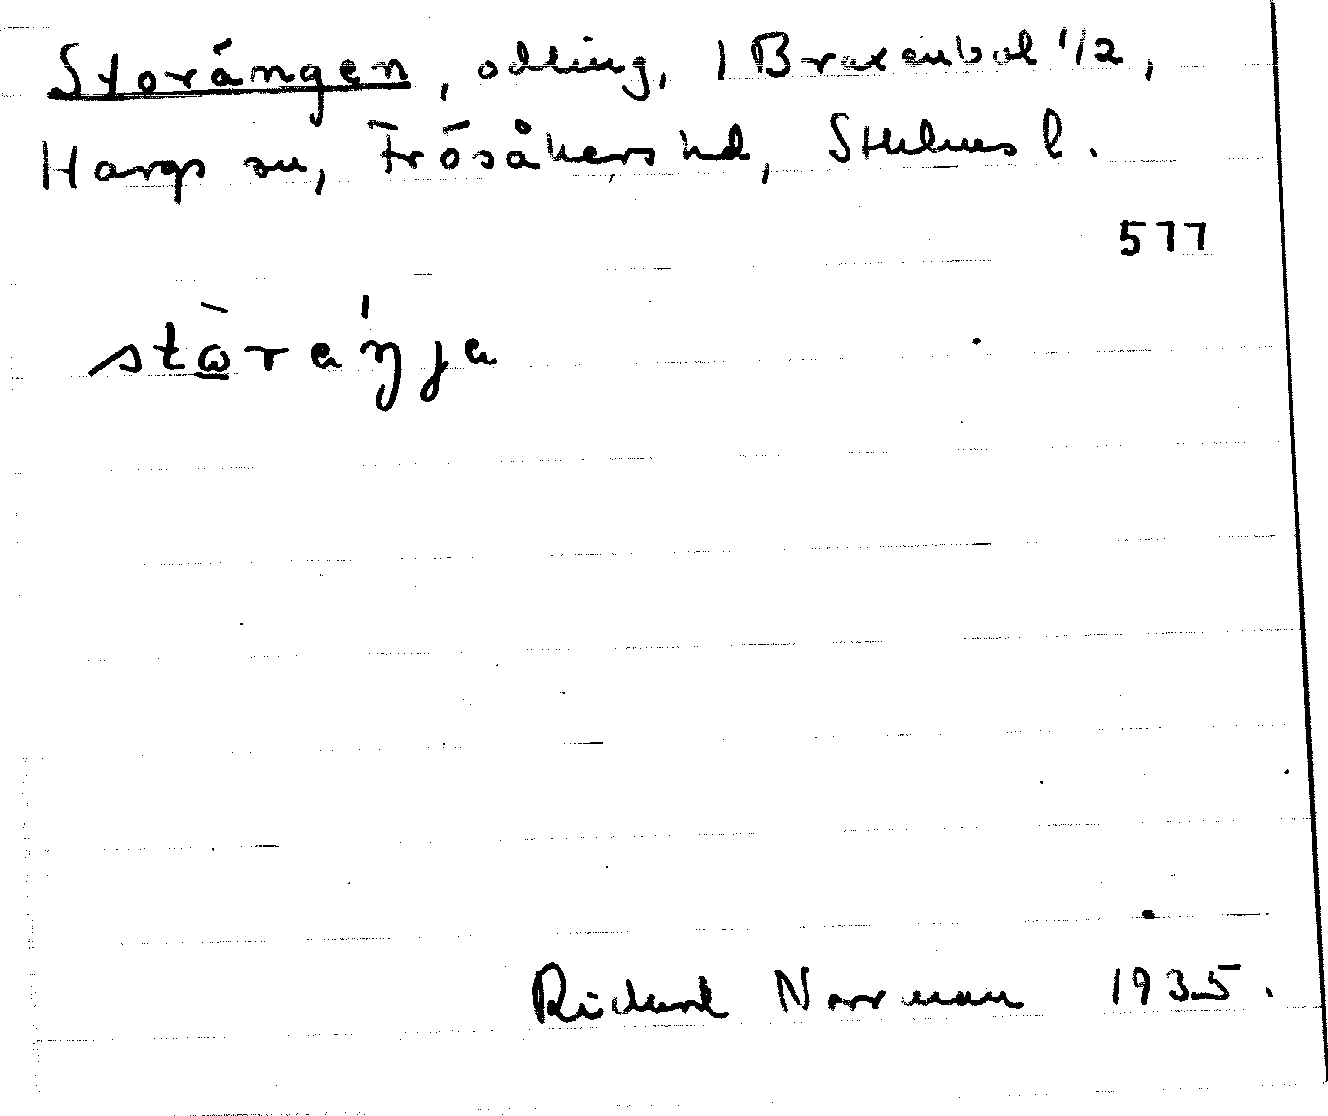 Storängen, odling, i Braxenbol 1/2,
Hargs sn, Frösåkers hd, Sthlms l.
577
Richard Norrman 1935.